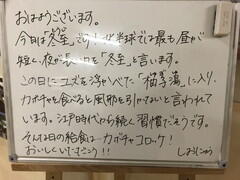 おはようございます。
今日は「冬至」です！北半球では最も昼が
短く、夜が長い日を「冬至」と言います。
この日にユズを浮かべた「柚子湯」に入り、
カボチャを食べると風邪を引かないと言われて
います。江戸時代から続く習慣だそうです。
そんな本日の給食は カボチャコロッケ！
おいしくいただこう！！